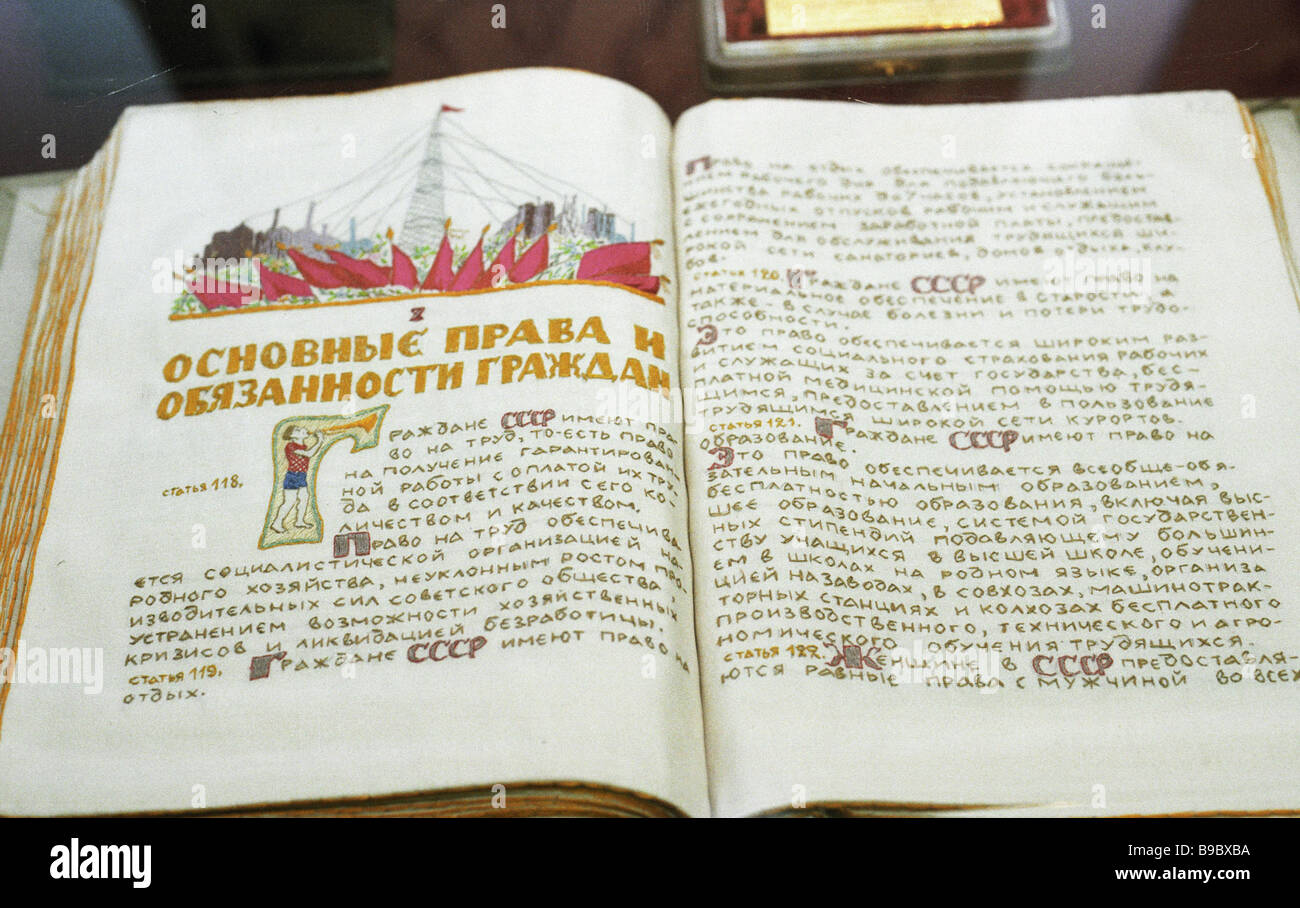 X
ОСНОВНЫЕ ПРАВА И
ОБЯЗАННОСТИ ГРАЖДАН
статья 118.
ГРАЖДАНЕ СССР ИМЕЮТ ПРА
ВО НА ТРУД, ТО-ЕСТЬ ПРАВО
НА ПОЛУЧЕНИЕ ГАРАНТИРОВАН
НОЙ РАБОТЫ С ОПЛАТОЙ ИХ ТРУ-
ДА В СООТВЕТСТВИИ С ЕГО КО-
ЛИЧЕСТВОМ И КАЧЕСТВОМ.
ПРАВО НА ТРУД ОБЕСПЕЧИВА
ЕТСЯ СОЦИАЛИСТИЧЕСКОЙ ОРГАНИЗАЦИЕЙ НА-
РОДНОГО ХОЗЯЙСТВА, НЕУКЛОННЫМ РОСТОМ ПРО-
ИЗВОДИТЕЛЬНЫХ СИЛ СОВЕТСКОГО ОБЩЕСТВА
УСТРАНЕНИЕМ ВОЗМОЖНОСТИ ХОЗЯЙСТВЕННЫХ
КРИЗИСОВ И ЛИКВИДАЦИЕЙ БЕЗРАБОТИЦЫ.
СТАТЬЯ 119. ГРАЖДАНЕ СССР ИМЕЮТ ПРАВО НА
ОТДЫХ.
ПРАВО НА ОТДЫХ ОБЕСПЕЧИВАЕТСЯ СОКРАЩЕ-
НИЕМ РАБОЧЕГО ДНЯ ДЛЯ ПОДАВЛЯЮЩЕГО БОЛЬ-
ШИНСТВА РАБОЧИХ ДО 7 ЧАСОВ, УСТАНОВЛЕНИЕМ
ЕЖЕГОДНЫХ ОТПУСКОВ РАБОЧИМ И СЛУЖАЩИМ
С СОХРАНЕНИЕМ ЗАРАБОТНОЙ ПЛАТЫ, ПРЕДОСТАВ-
ЛЕНИЕМ ДЛЯ ОБСЛУЖИВАНИЯ ТРУДЯЩИХСЯ ШИ-
РОКОЙ СЕТИ САНАТОРИЕВ, ДОМОВ ОТДЫХА, КЛУ-
БОВ.
СТАТЬЯ 120. ГРАЖДАНЕ СССР ИМЕЮТ ПРАВО НА
МАТЕРИАЛЬНОЕ ОБЕСПЕЧЕНИЕ В СТАРОСТИ, А
ТАКЖЕ- В СЛУЧАЕ БОЛЕЗНИ И ПОТЕРИ ТРУДО-
СПОСОБНОСТИ.
ЭТО ПРАВО ОБЕСПЕЧИВАЕТСЯ ШИРОКИМ РАЗ-
ВИТИЕМ СОЦИАЛЬНОГО СТРАХОВАНИЯ РАБОЧИХ
И СЛУЖАЩИХ ЗА СЧЕТ ГОСУДАРСТВА, БЕС-
ПЛАТНОЙ МЕДИЦИНСКОЙ ПОМОЩЬЮ ТРУДЯ-
ЩИМСЯ, ПРЕДОСТАВЛЕНИЕМ В ПОЛЬЗОВАНИЕ
ТРУДЯЩИМСЯ ШИРОКОЙ СЕТИ КУРОРТОВ.
СТАТЬЯ 121. ГРАЖДАНЕ СССР ИМЕЮТ ПРАВО НА
ОБРАЗОВАНИЕ.
ЭТО ПРАВО ОБЕСПЕЧИВАЕТСЯ ВСЕОБЩЕ-ОБЯ-
ЗАТЕЛЬНЫМ НАЧАЛЬНЫМ ОБРАЗОВАНИЕМ,
БЕСПЛАТНОСТЬЮ ОБРАЗОВАНИЯ, ВКЛЮЧАЯ ВЫС-
ШЕЕ ОБРАЗОВАНИЕ, СИСТЕМОЙ ГОСУДАРСТВЕН-
НЫХ СТИПЕНДИЙ ПОДАВЛЯЮЩЕМУ БОЛЬШИН-
СТВУ УЧАЩИХСЯ В ВЫСШЕЙ ШКОЛЕ, ОБУЧЕНИ-
ЕМ В ШКОЛАХ НА РОДНОМ ЯЗЫКЕ, ОРГАНИЗА
ЦИЕЙ НА ЗАВОДАХ, В СОВХОЗАХ, МАШИНОТРАК-
ТОРНЫХ СТАНЦИЯХ И КОЛХОЗАХ БЕСПЛАТНОГО
ПРОИЗВОДСТВЕННОГО, ТЕХНИЧЕСКОГО И АГРО-
НОМИЧЕСКОГО ОБУЧЕНИЯ ТРУДЯЩИХСЯ.
СТАТЬЯ 122. ЖЕНЩИНЕ В СССР ПРЕДОСТАВЛЯ-
ЮТСЯ РАВНЫЕ ПРАВА С МУЖЧИНОЙ ВО ВСЕХ
alamy
Image ID: B9BXBA
www.alamy.com